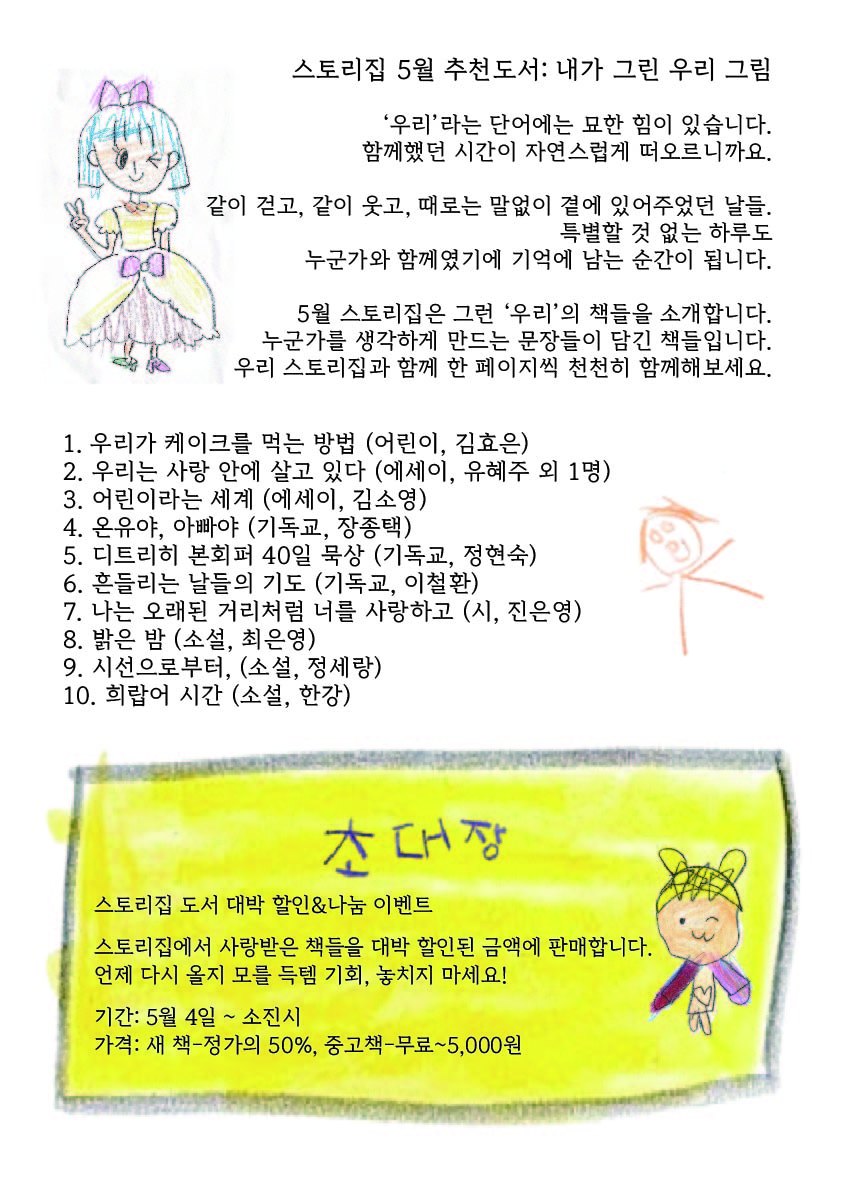 스토리집 5월 추천도서: 내가 그린 우리 그림
‘우리’라는 단어에는 묘한 힘이 있습니다.
함께했던 시간이 자연스럽게 떠오르니까요.
같이 걷고, 같이 웃고, 때로는 말없이 곁에 있어주었던 날들.
특별할 것 없는 하루도
누군가와 함께였기에 기억에 남는 순간이 됩니다.
5월 스토리집은 그런 ‘우리’의 책들을 소개합니다.
누군가를 생각하게 만드는 문장들이 담긴 책들입니다.
우리 스토리집과 함께 한 페이지씩 천천히 함께해보세요.
1. 우리가 케이크를 먹는 방법 (어린이, 김효은)
2. 우리는 사랑 안에 살고 있다 (에세이, 유혜주 외 1명)
3. 어린이라는 세계 (에세이, 김소영)
4. 온유야, 아빠야 (기독교, 장종택)
5. 디트리히 본회퍼 40일 묵상 (기독교, 정현숙)
6. 흔들리는 날들의 기도 (기독교, 이철환)
7. 나는 오래된 거리처럼 너를 사랑하고 (시, 진은영)
8. 밝은 밤 (소설, 최은영)
9. 시선으로부터, (소설, 정세랑)
10. 희랍어 시간 (소설, 한강)
초대장
스토리집 도서 대박 할인&나눔 이벤트
스토리집에서 사랑받은 책들을 대박 할인된 금액에 판매합니다.
언제 다시 올지 모를 득템 기회, 놓치지 마세요!
기간: 5월 4일 ~ 소진시
가격: 새 책-정가의 50%, 중고책-무료~5,000원